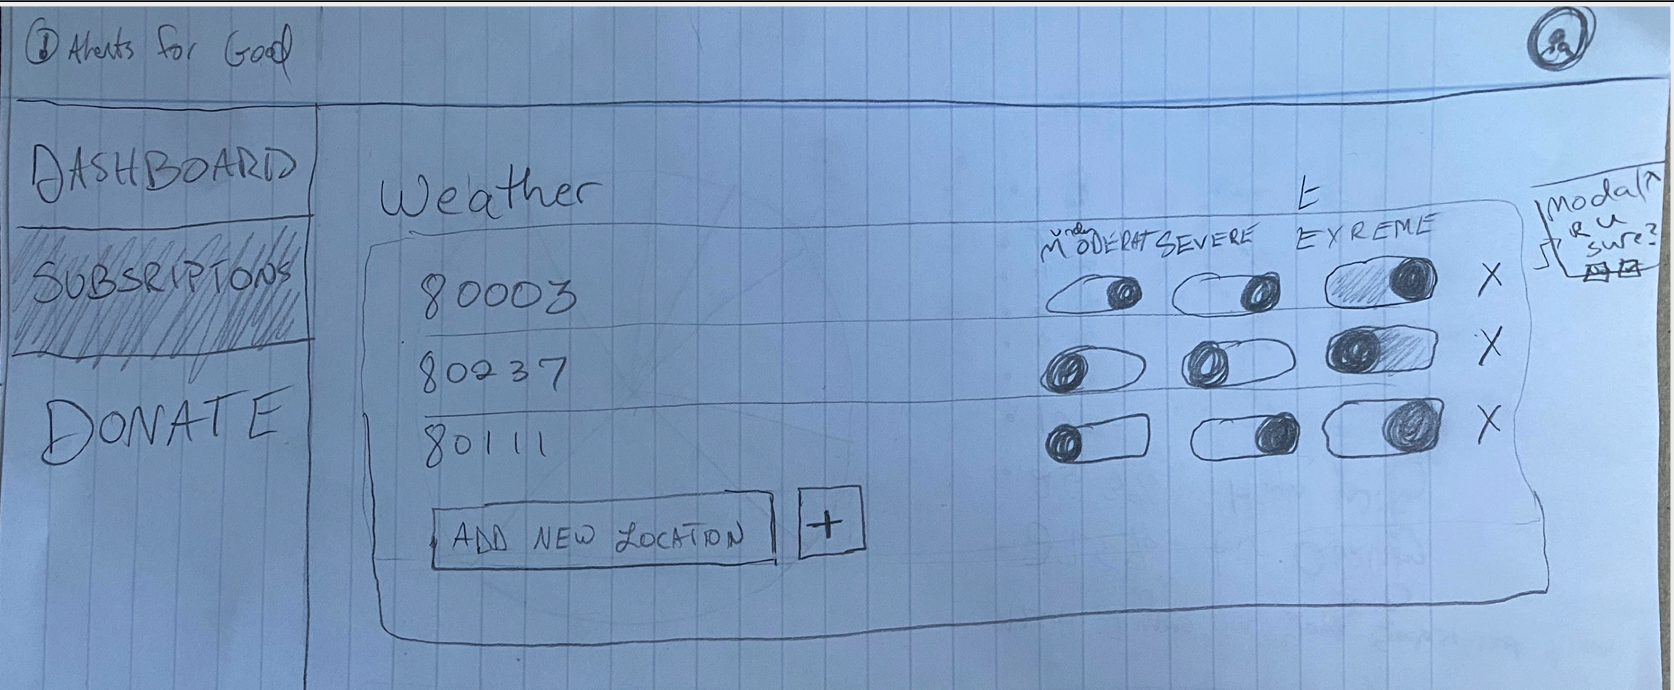 Alerts for Good
DASHBOARD
SUBSRIPTIONS
DONATE
Weather
E
MODERAT SEVERE EXREME
80003 X
80237 X
80111 X
ADD NEW LOCATION +
Modal
R U
sure?